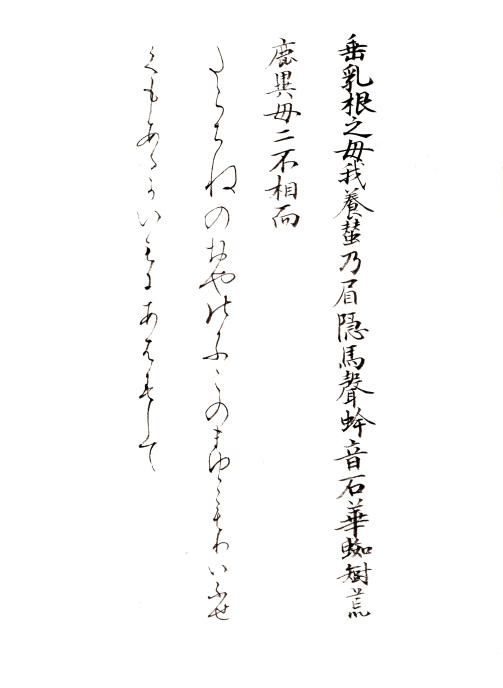 垂乳根之母我養蚕乃眉隠馬聲蜂音石華蜘蟵荒
鹿異母二不相而
たらちねのおやのかふこのまゆこもりいふせ
くもあるかいもにあはすして